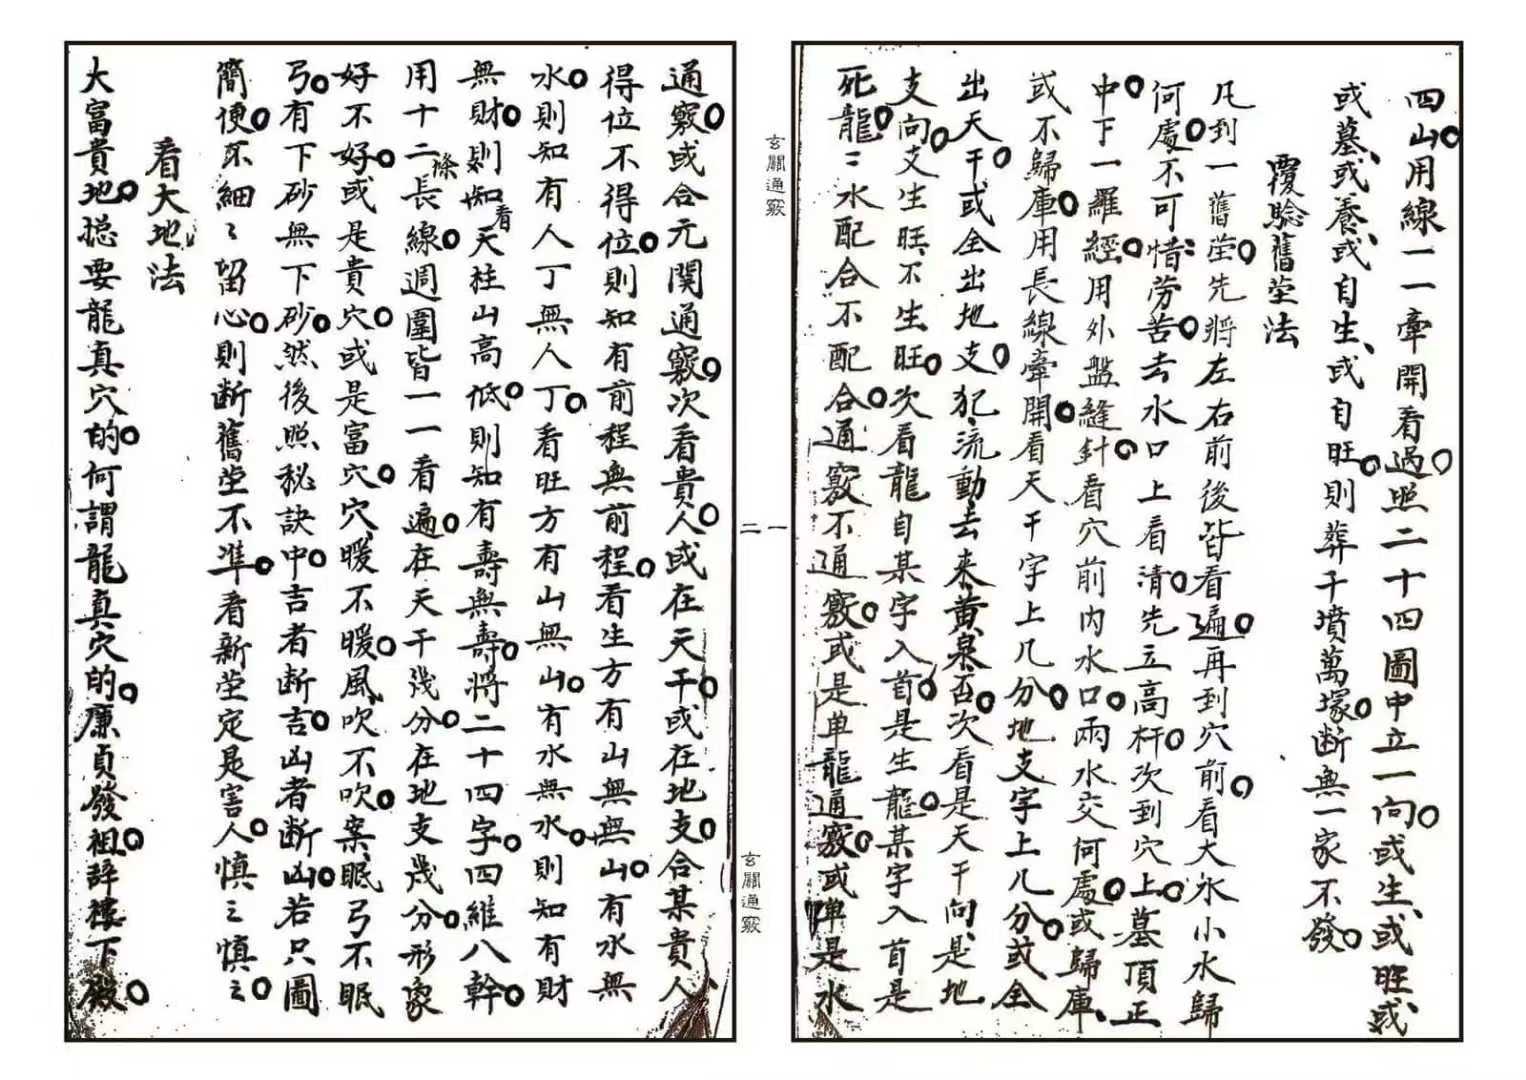 四山用線一一牽開看過照二十四圖中立一向或生或旺或
或墓或養或自生或自旺則葬千墳萬塚断無一家不發
覆驗舊塋法
凡到一舊塋先將左右前後皆看遍再到穴前看大水小水歸
何處不可惜劳苦去水口上看清先立高杆次到穴上墓頂正
中下一羅經用外盤縫針看穴前內水口兩水交何處或歸庫
或不歸庫用長線牽開看天干字上几分地支字上几分或全
出天干或全出地支犯流動去来黄泉否次看是天干向是地
支向支生旺不生旺次看龍自某字入首是生龍某字入首是
死龍〻水配合不配合通竅不通竅或是单龍通竅或单是水
玄關通竅
一
二
玄關通竅
通竅或合元関通竅次看貴人或在天干或在地支合某貴人
得位不得位則知有前程無前程看生方有山無無山有水無
水則知有人丁無人丁看旺方有山無山有水無水則知有財
無財則知看天柱山高低則知有壽無壽將二十四字四維八幹
用十二條長線週圍皆一一看遍在天干幾分在地支幾分形象
好不好或是貴穴或是富穴穴暖不暖風吹不吹案眠弓不眠
弓有下砂無下砂然後照秘訣中吉者断吉凶者断凶若只圖
簡便不細〻留心則断舊塋不準看新塋定是害人慎之慎之
看大地法
大富貴地揔要龍真穴的何謂龍真穴的廉貞發祖辞樓下殿